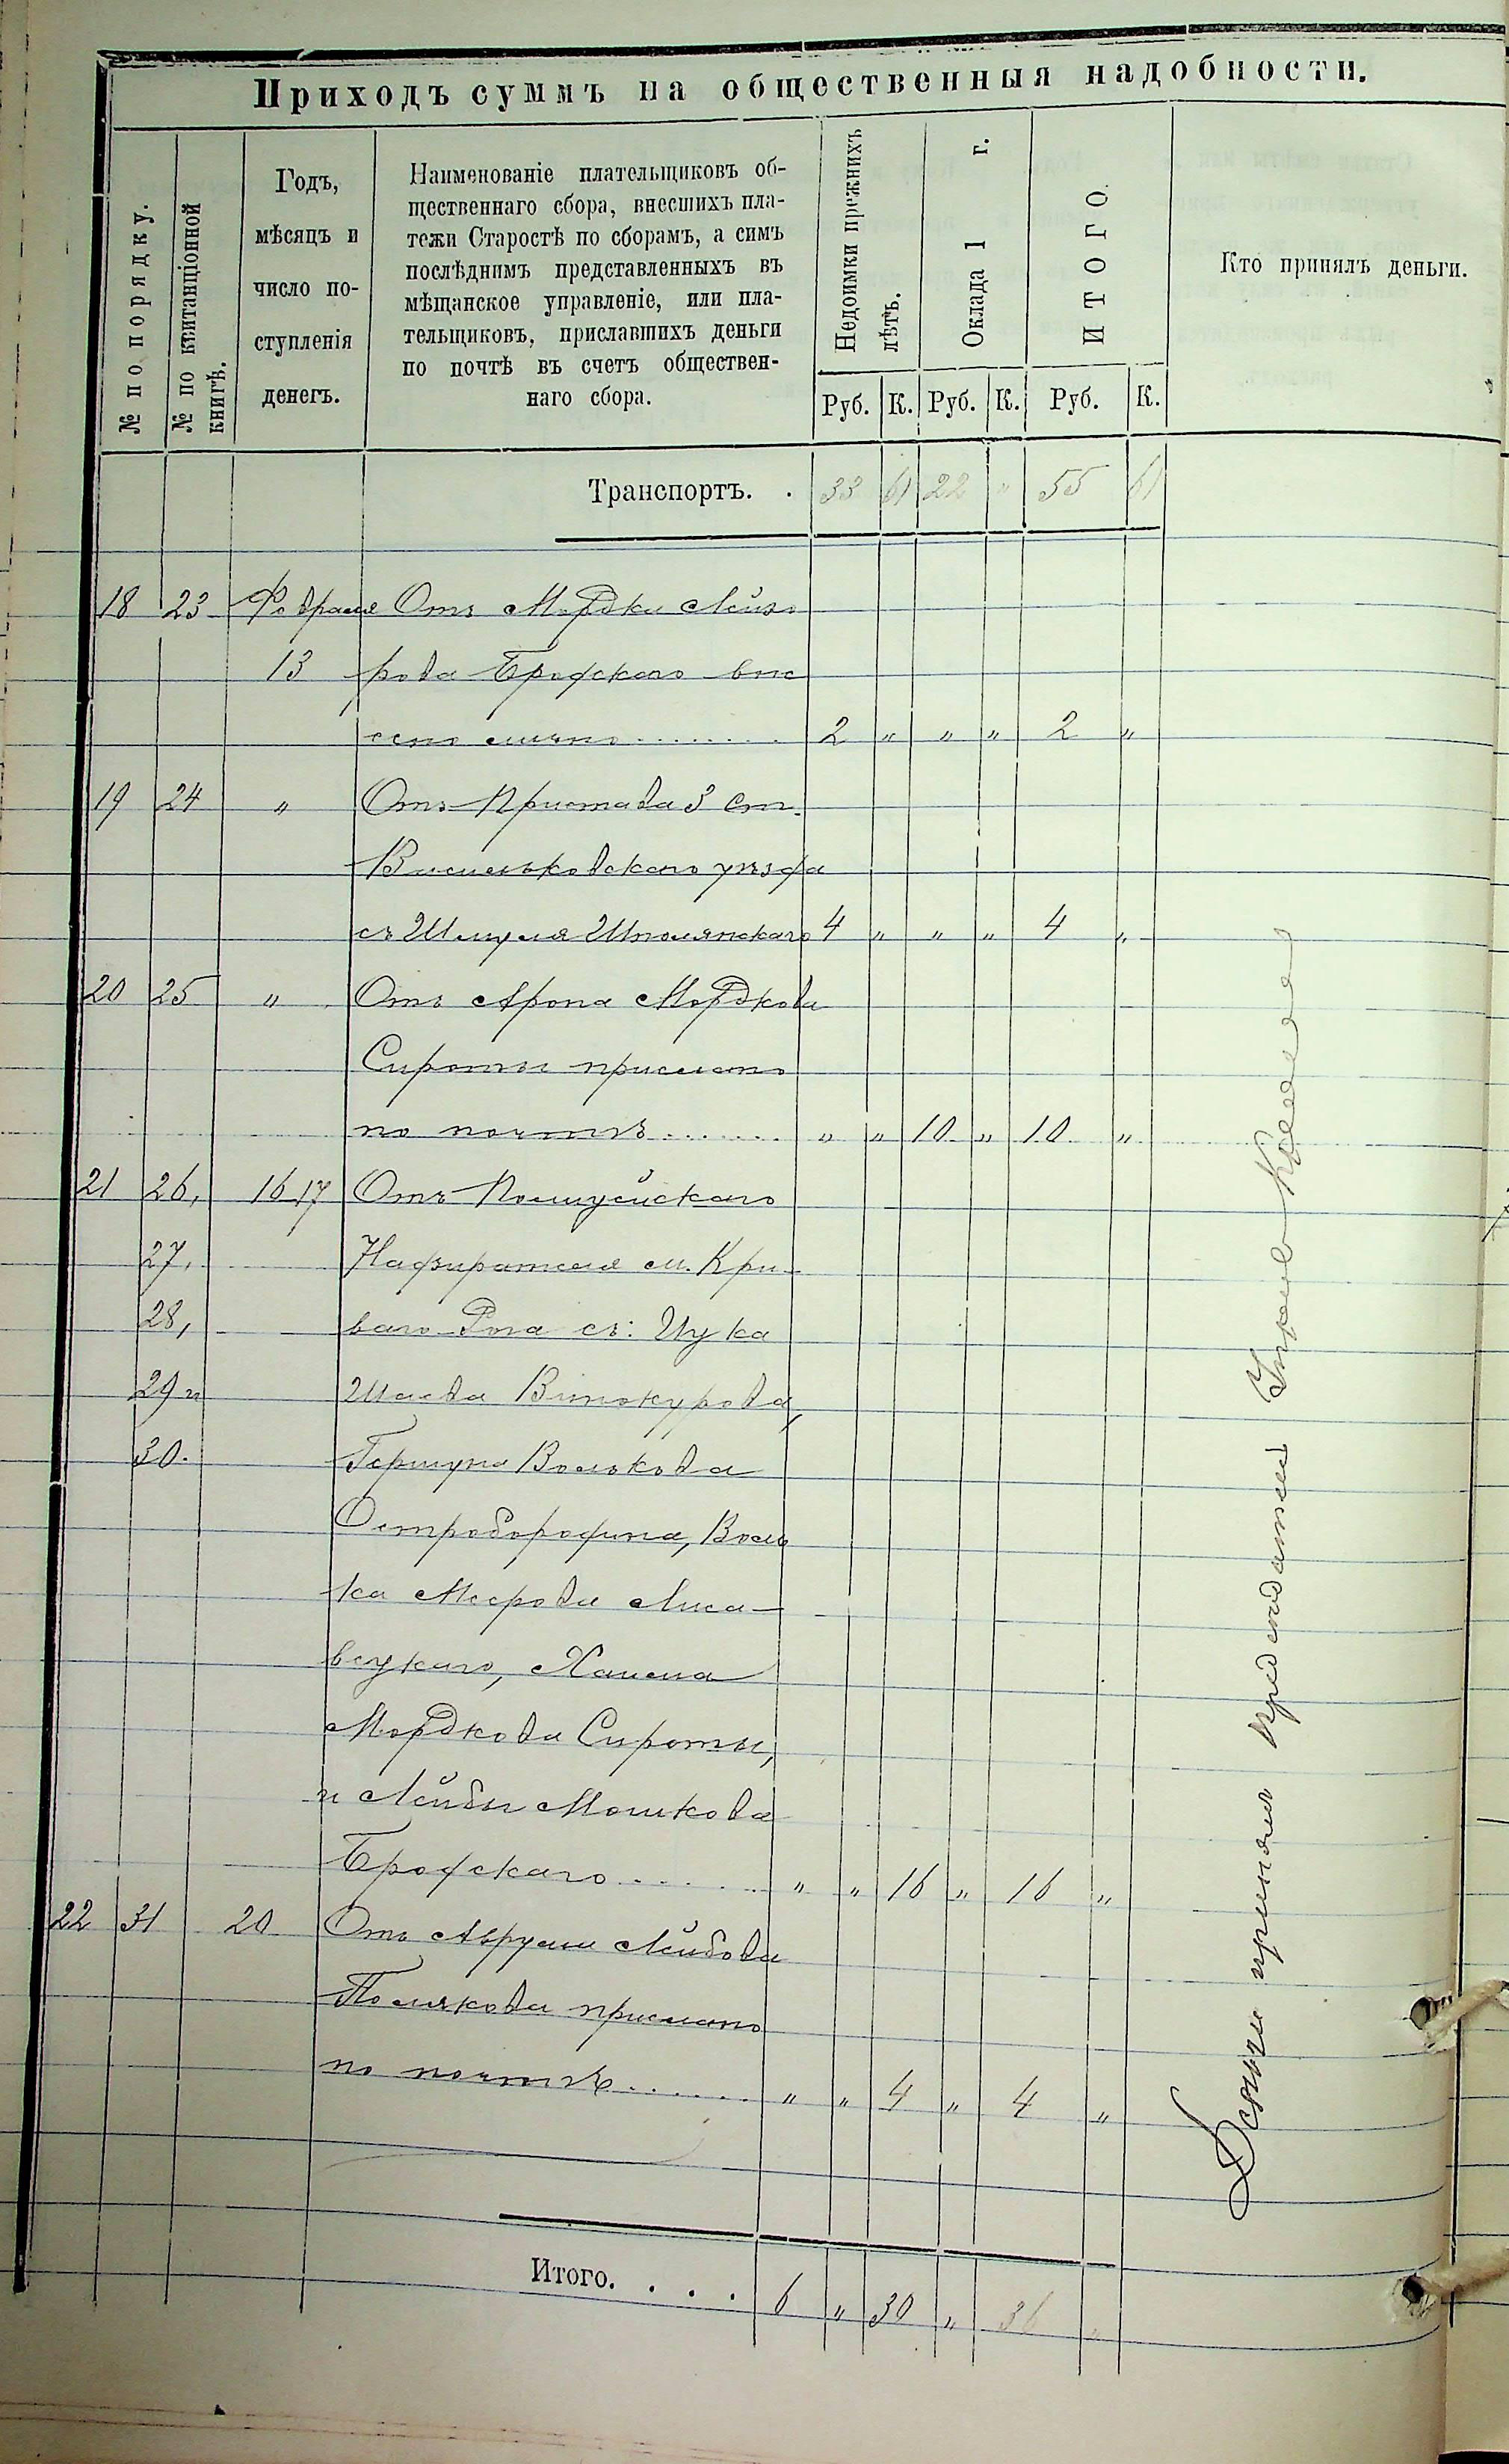 Приходъ суммъ на общественныя надобности.
№ по порядку.
№ по квитанціонной
книгѣ.
Годъ,
мѣсяцъ и
число по-
ступленія
денегъ.
Наименованіе плательщиковъ об-
щественнаго сбора, внесшихъ пла-
тежи Старостѣ по сборамъ, а симъ
послѣднимъ представленныхъ въ
мѣщанское управленіе, или пла-
тельщиковъ, приславшихъ деньги
по почтѣ въ счетъ обществен-
наго сбора.
Недоимки прежнихъ
лѣтъ.
Оклада 1 г.
ИТОГО.
Кто принялъ деньги.
Руб. К. Руб. К. Руб. К.
Транспортъ. . 33 61 22 " 55 61
18 23 Февраля Отъ Мордки Лейзе
13 рова Бродскаго вне
сено лично ........ 2 " " " 2 "
19 24 " Отъ Пристава 3 Ст.
Васильковскаго уѣзда
съ Шмуля Шполянскаго 4 " " " 4 "
20 25 " Отъ Арона Мордкова
Сироты прислано
по почтѣ ....... " " 10 " 10 "
21 26, 16 17 Отъ Полицейскаго
27, Надзирателя м. Кри-
28, ваго Рога съ: Ицка
29 и Шаева Винокурова,
30. Гершуна Волькова
Остробородина, Воль
ка Меерова Лиса-
вецкаго, Хаима
Мордкова Сироты,
и Лейбы Мошкова
Бродскаго ....... " " 16 " 16 "
22 31 20 Отъ Аврума Лейбова
Полякова прислано
по почтѣ ...... " " 4 " 4 "
Итого. . . . 6 " 30 " 36 "
Деньги принялъ